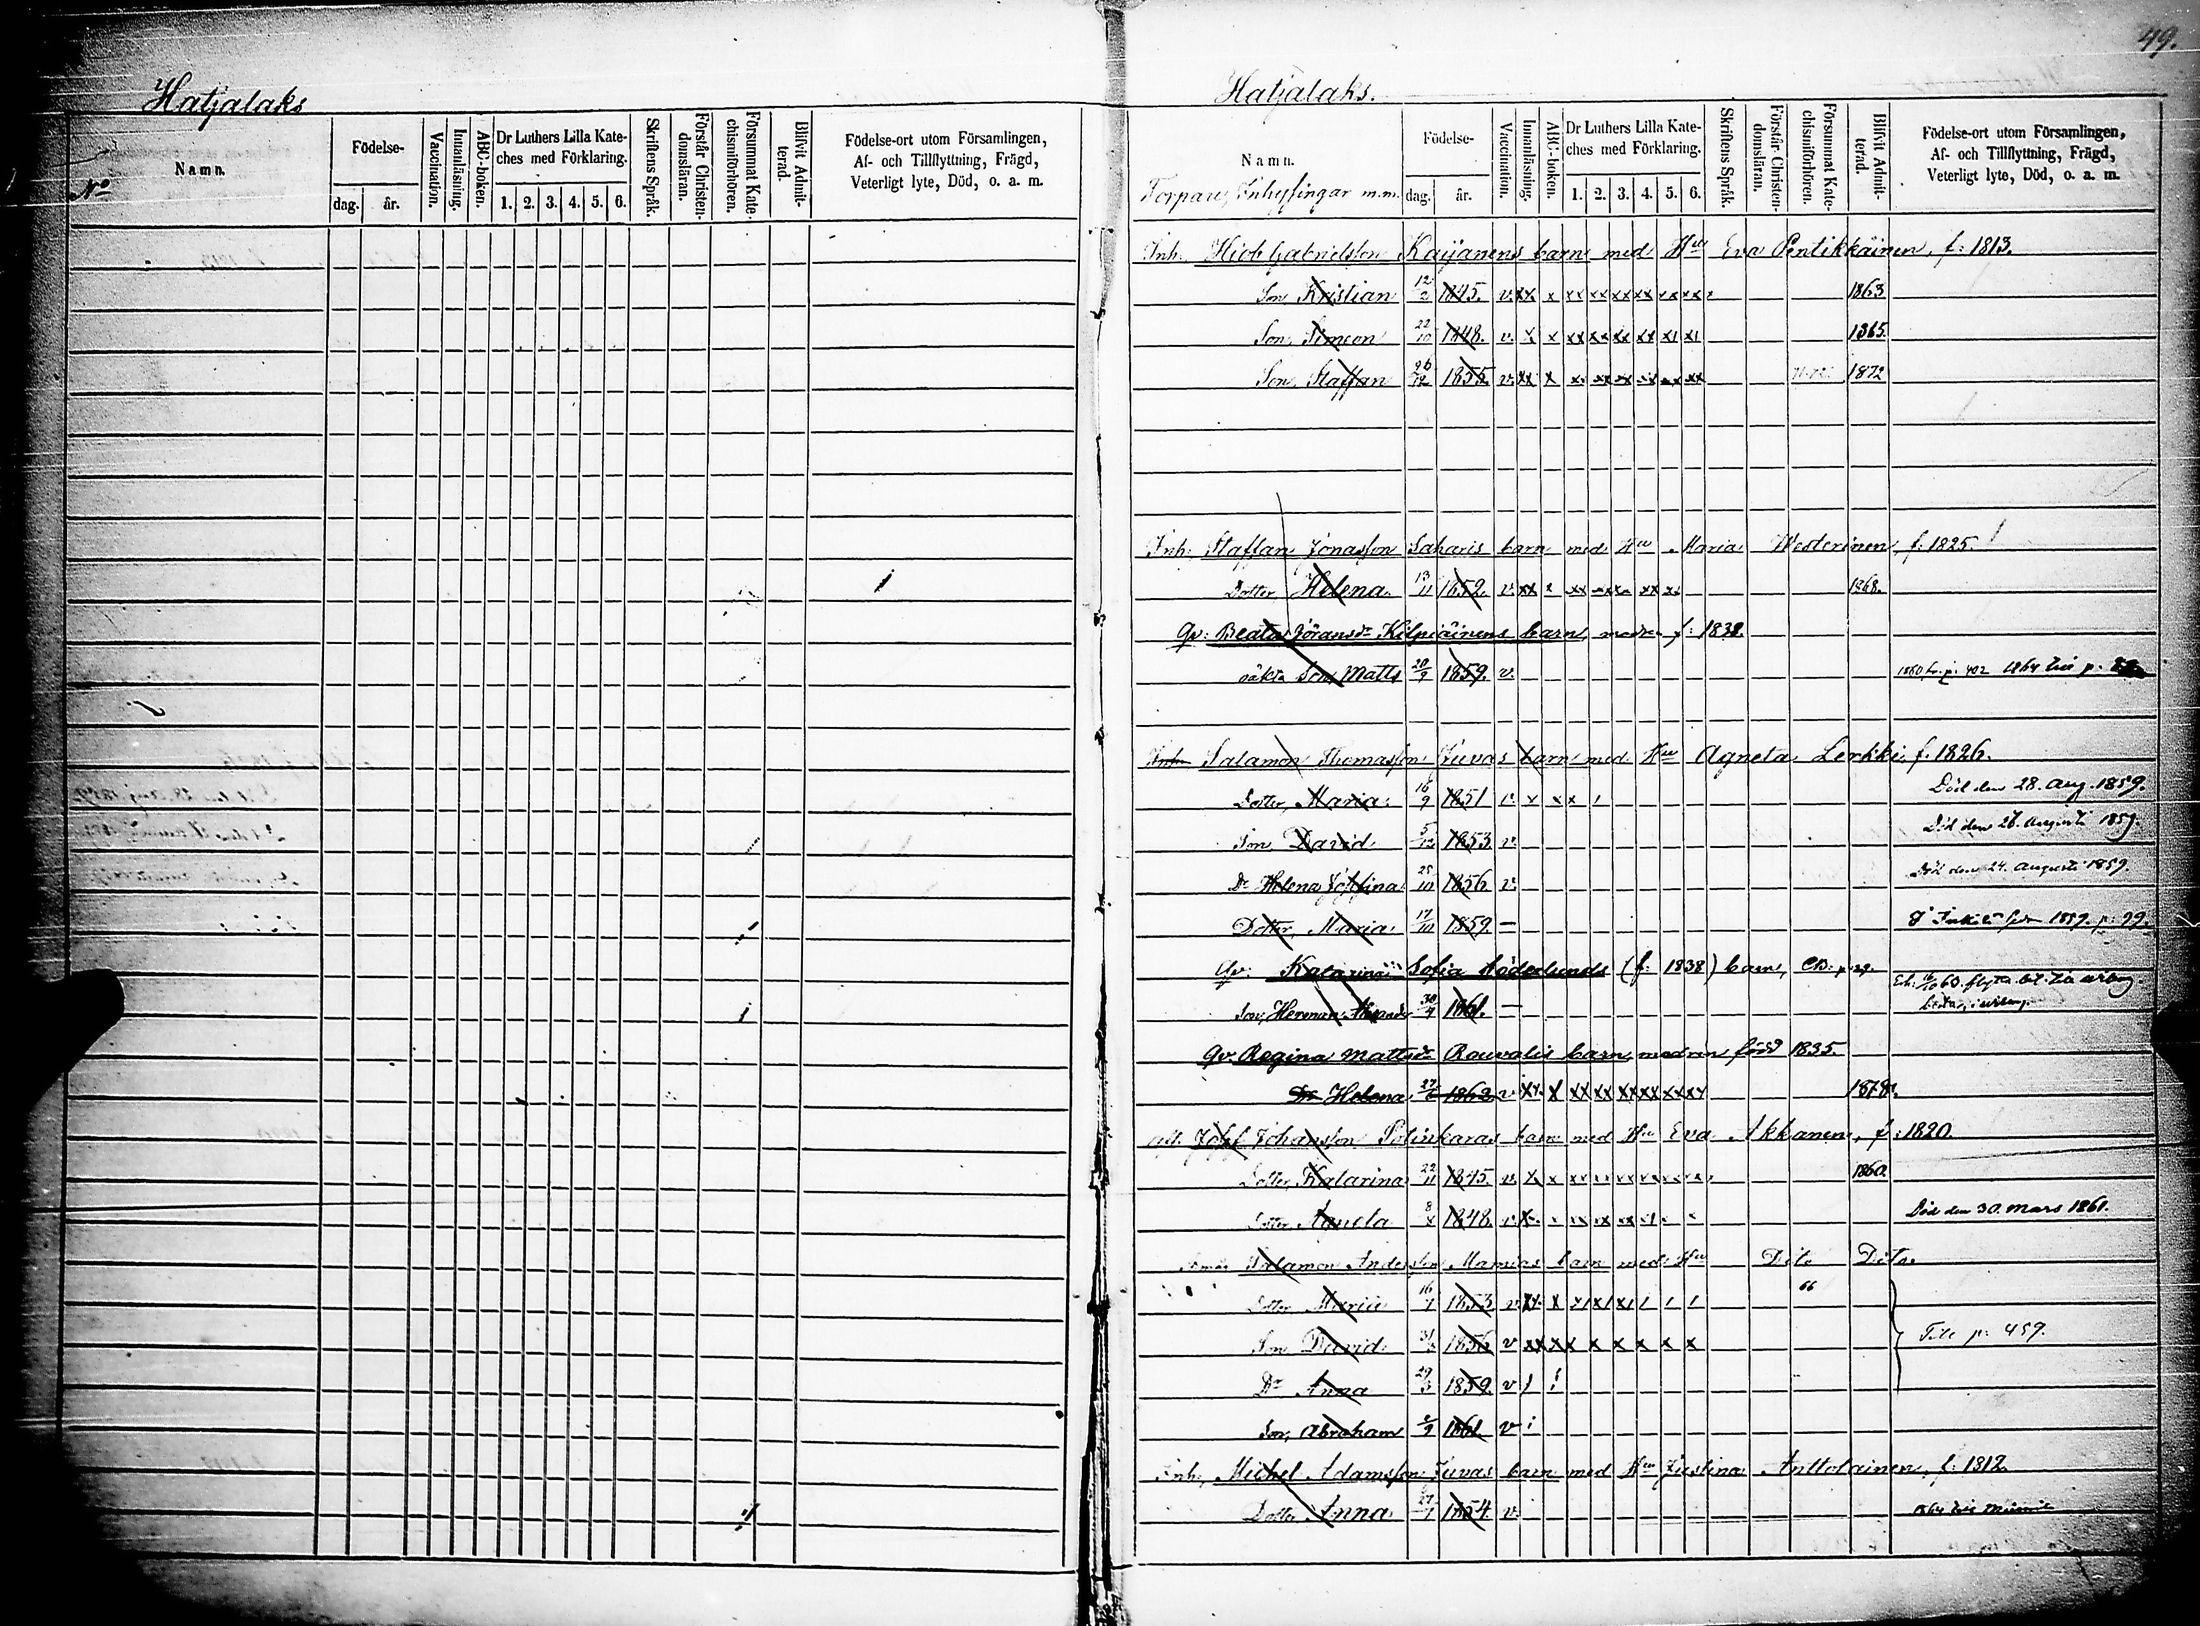 49.
Hatjalaks
Hatjalaks.
No Namn. Födelse- dag. år. Vaccination. Innanläsning. ABC-boken. Dr Luthers Lilla Kateches med Förklaring. 1. 2. 3. 4. 5. 6. Skriftens Språk. Förstår Christendomsläran. Försummat Katechismiförhören. Blifvit Admitterad. Födelse-ort utom Församlingen, Af- och Tillflyttning, Frägd, Veterligt lyte, Död, o. a. m.
Namn. Torpare, Inhysingar m.m. Födelse- dag. år. Vaccination. Innanläsning. ABC-boken. Dr Luthers Lilla Kateches med Förklaring. 1. 2. 3. 4. 5. 6. Skriftens Språk. Förstår Christendomsläran. Försummat Katechismiförhören. Blifvit Admitterad. Födelse-ort utom Församlingen, Af- och Tillflyttning, Frägd, Veterligt lyte, Död, o. a. m.
Inh. Hiob Gabrielsson Kaijanens barn med Hu Eva Pentikkäinen, f: 1813.
Son Kristian 12/2 1845. v. xx x xx xx xx xx xx xx 1863
Son Simeon 22/10 1848. v. x x xx xx xx xx x1 x1 1865.
Son Staffan 26/12 1855. v. xx x xx xx xx xx xx xx 1872
Inh. Staffan Jonasson Saharis barn med Hu Maria Westerinen, f: 1825.
Dotter, Helena. 13/11 1852. v. xx x xx xx xx xx 1868.
Qv: Beata Göransdr Kilpiäinens barn, modren f: 1838.
oäkta Son, Matts 20/9 1859. v. 1860 fr. p: 402 1864 till p.
Salamon Thomasson Juvas barn med Hu Agneta Lerkki, f. 1826.
Dotter, Maria. 16/9 1851 v. x x x 1 Död den 28. Aug. 1859.
Son, David 5/12 1853 v. Död den 26. Augusti 1859.
Dr Helena Josefina 25/10 1856 v. Död den 24. Augusti 1859.
Dotter, Maria 17/10 1859. — 1859. p: 99.
Qv: Katarina Sofia Söderlunds (f: 1838) barn,
Son, Herman 30/9 1861. —
Qv. Regina Mattsdr Rouvalis barn, modren född 1835.
Dr Helena 27/6 1862 v. xx x xx xx xx xx xx xx 1878.
Josef Johansson Solinkaras barn med Hu Eva Akkanen, f: 1820.
Dotter, Katarina 22/11 1845. v. x x xx xx xx xx xx xx 1860.
Dotter Agneta 8/x 1848. v. Död den 30. Mars 1861.
Salamon Andersson Mamias barn med Hu Dito Dito.
Dotter Maria 16/1 1853 v. xx x x1 x1 x1 1 1 1 66
Son David 31/ 1856 v xx xx x x x x x Till p: 459.
Dr Anna 29/3 1859. v 1
Son, Abraham 2/9 1861. v
Inh, Michel Adamsson Juvas barn med Hu Justina Anttolainen, f: 1812.
Dotter Anna 27/1 1854. v.